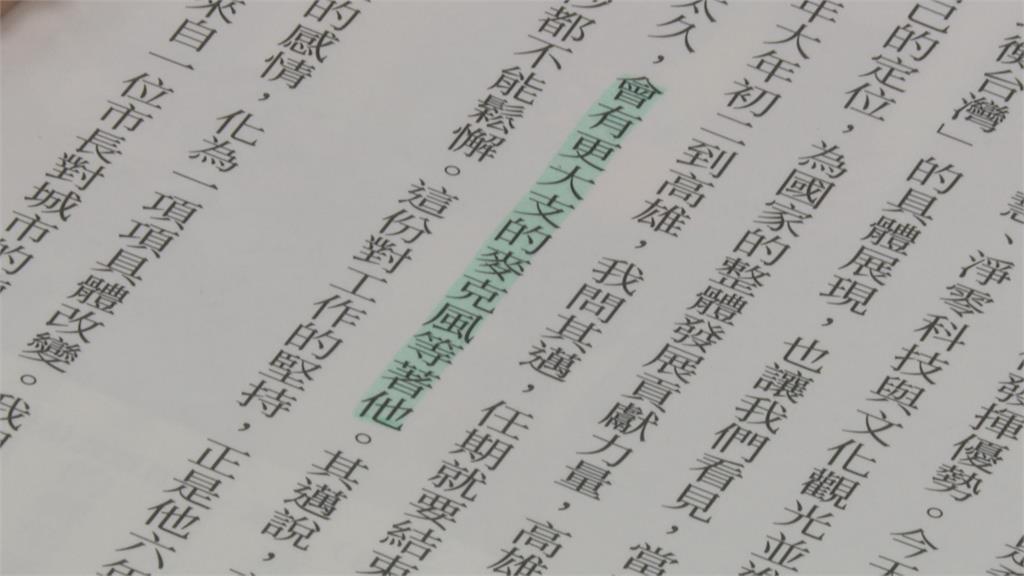 發揮優勢。今天
慧、淨零科技與文化觀光並
衡台灣」的具體展現，也讓我們看見，當
己的定位，為國家的整體發展貢獻力量，高雄
年大年初二到高雄，我問其邁，任期就要結束
太久，會有更大支的麥克風等著他。其邁說，
秒都不能鬆懈。這份對工作的堅持，正是他六年
的感情，化為一項項具體改變。我
來自一位市長對城市的